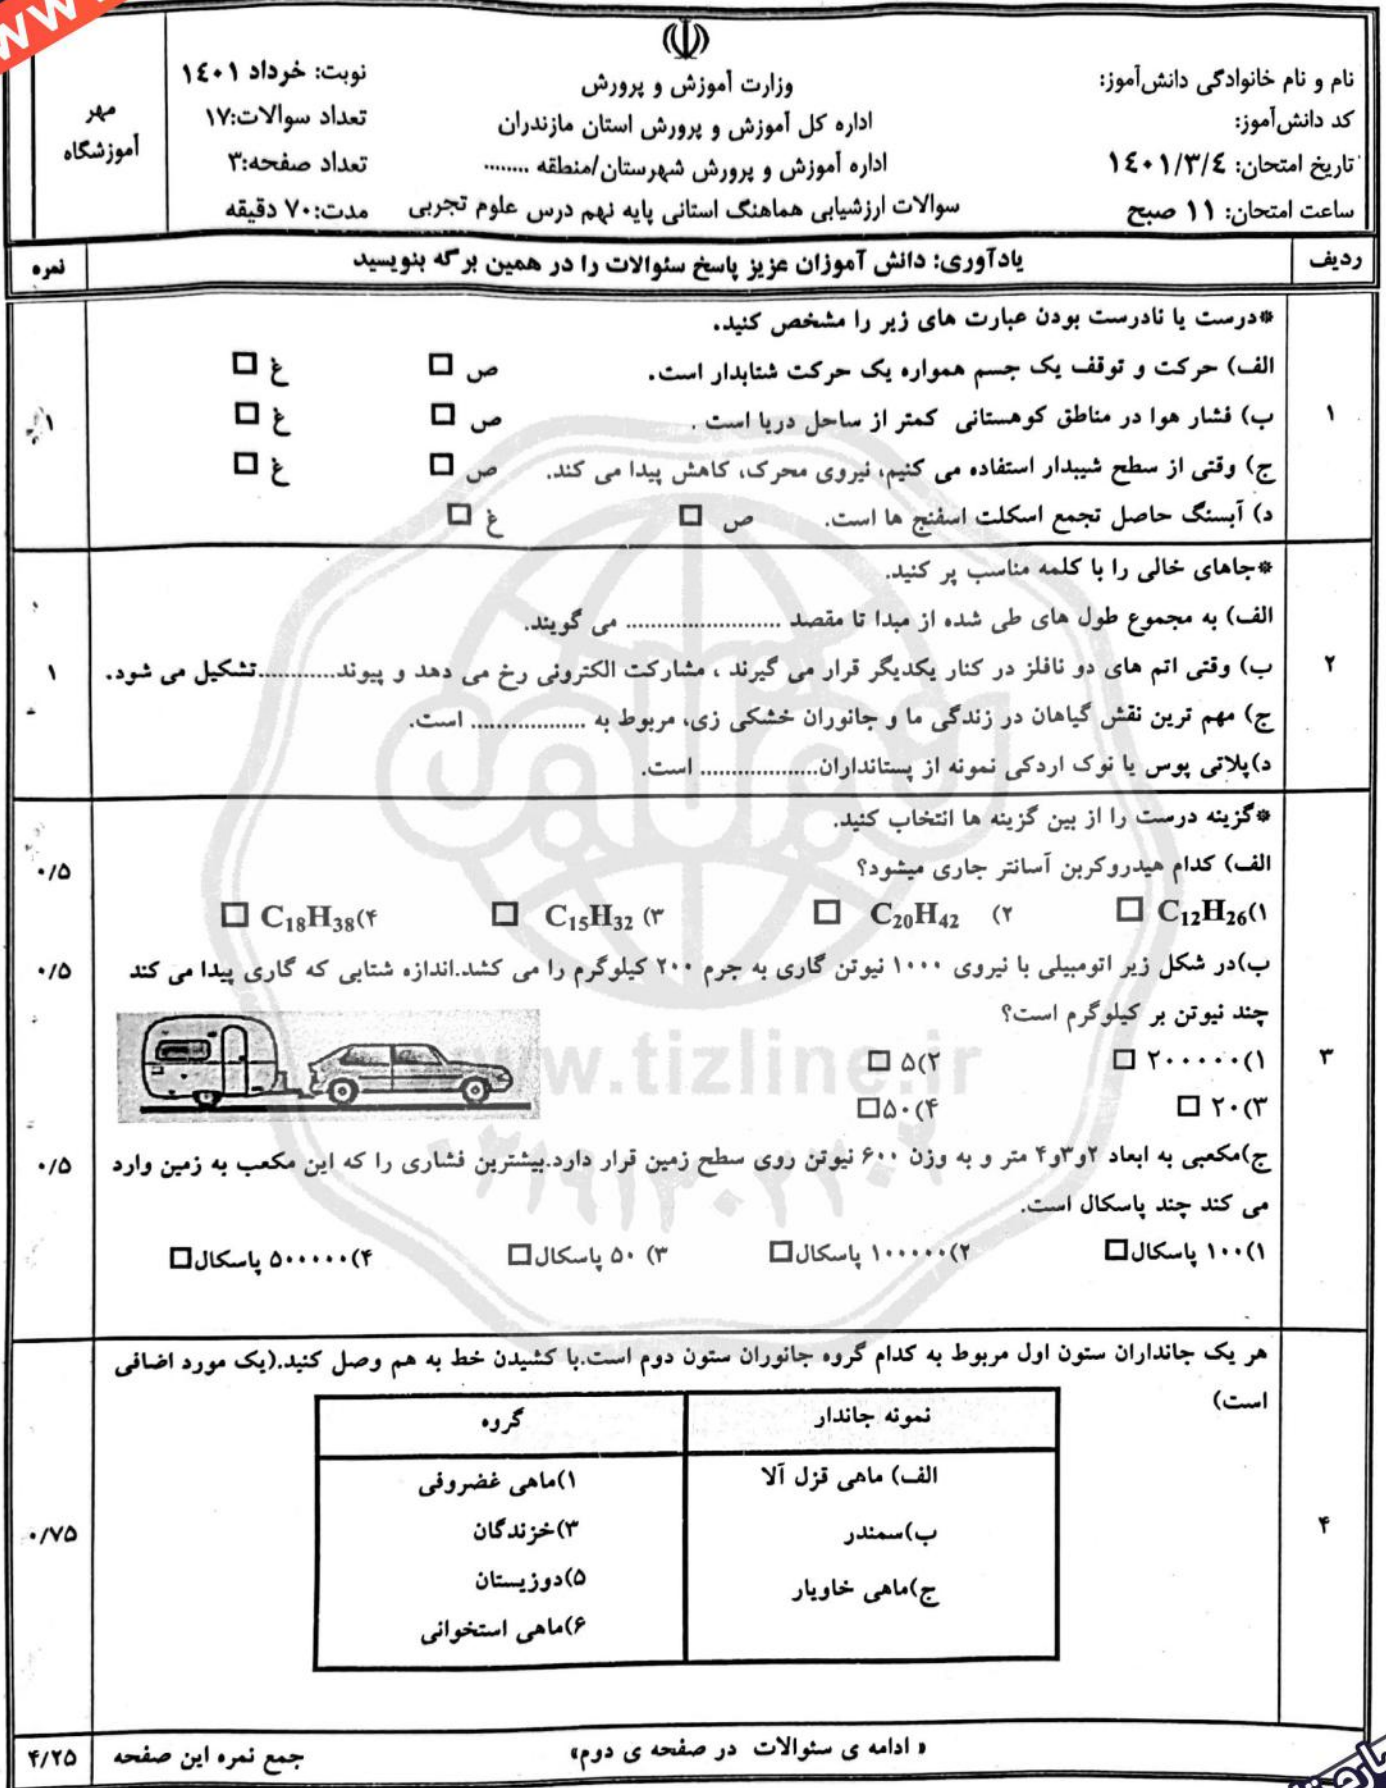 نام و نام خانوادگی دانش‌آموز:
کد دانش‌آموز:
تاریخ امتحان: ۱٤۰۱/۳/٤
ساعت امتحان: ۱۱ صبح
وزارت آموزش و پرورش
اداره کل آموزش و پرورش استان مازندران
اداره آموزش و پرورش شهرستان/منطقه ........
سوالات ارزشیابی هماهنگ استانی پایه نهم درس علوم تجربی
نوبت: خرداد ۱٤۰۱
تعداد سوالات:۱۷
تعداد صفحه:۳
مدت:۷۰ دقیقه
مهر
آموزشگاه
ردیف یادآوری: دانش آموزان عزیز پاسخ سئوالات را در همین برگه بنویسید نمره
*درست یا نادرست بودن عبارت های زیر را مشخص کنید.
الف) حرکت و توقف یک جسم همواره یک حرکت شتابدار است. ص □ غ □
۱ ب) فشار هوا در مناطق کوهستانی کمتر از ساحل دریا است . ص □ غ □ ۱
ج) وقتی از سطح شیبدار استفاده می کنیم، نیروی محرک، کاهش پیدا می کند. ص □ غ □
د) آبسنگ حاصل تجمع اسکلت اسفنج ها است. ص □ غ □
*جاهای خالی را با کلمه مناسب پر کنید.
الف) به مجموع طول های طی شده از مبدا تا مقصد ......................... می گویند.
۲ ب) وقتی اتم های دو نافلز در کنار یکدیگر قرار می گیرند ، مشارکت الکترونی رخ می دهد و پیوند............تشکیل می شود. ۱
ج) مهم ترین نقش گیاهان در زندگی ما و جانوران خشکی زی، مربوط به .................. است.
د)پلاتی پوس یا نوک اردکی نمونه از پستانداران................... است.
*گزینه درست را از بین گزینه ها انتخاب کنید.
الف) کدام هیدروکربن آسانتر جاری میشود؟ ۰/۵
۱)C₁₂H₂₆ □ ۲) C₂₀H₄₂ □ ۳) C₁₅H₃₂ □ ۴)C₁₈H₃₈ □
ب)در شکل زیر اتومبیلی با نیروی ۱۰۰۰ نیوتن گاری به جرم ۲۰۰ کیلوگرم را می کشد.اندازه شتابی که گاری پیدا می کند ۰/۵
چند نیوتن بر کیلوگرم است؟
۳ ۱)۲۰۰۰۰۰ □ ۲)۵ □
۳)۲۰ □ ۴)۵۰□
ج)مکعبی به ابعاد ۲و۳و۴ متر و به وزن ۶۰۰ نیوتن روی سطح زمین قرار دارد.بیشترین فشاری را که این مکعب به زمین وارد ۰/۵
می کند چند پاسکال است.
۱)۱۰۰ پاسکال□ ۲)۱۰۰۰۰۰ پاسکال□ ۳) ۵۰ پاسکال□ ۴)۵۰۰۰۰۰ پاسکال□
هر یک جانداران ستون اول مربوط به کدام گروه جانوران ستون دوم است.با کشیدن خط به هم وصل کنید.(یک مورد اضافی
است)
نمونه جاندار گروه
الف) ماهی قزل آلا ۱)ماهی غضروفی
۴ ب)سمندر ۳)خزندگان ۰/۷۵
ج)ماهی خاویار ۵)دوزیستان
۶)ماهی استخوانی
« ادامه ی سئوالات در صفحه ی دوم» جمع نمره این صفحه ۴/۲۵
www.tizline.ir